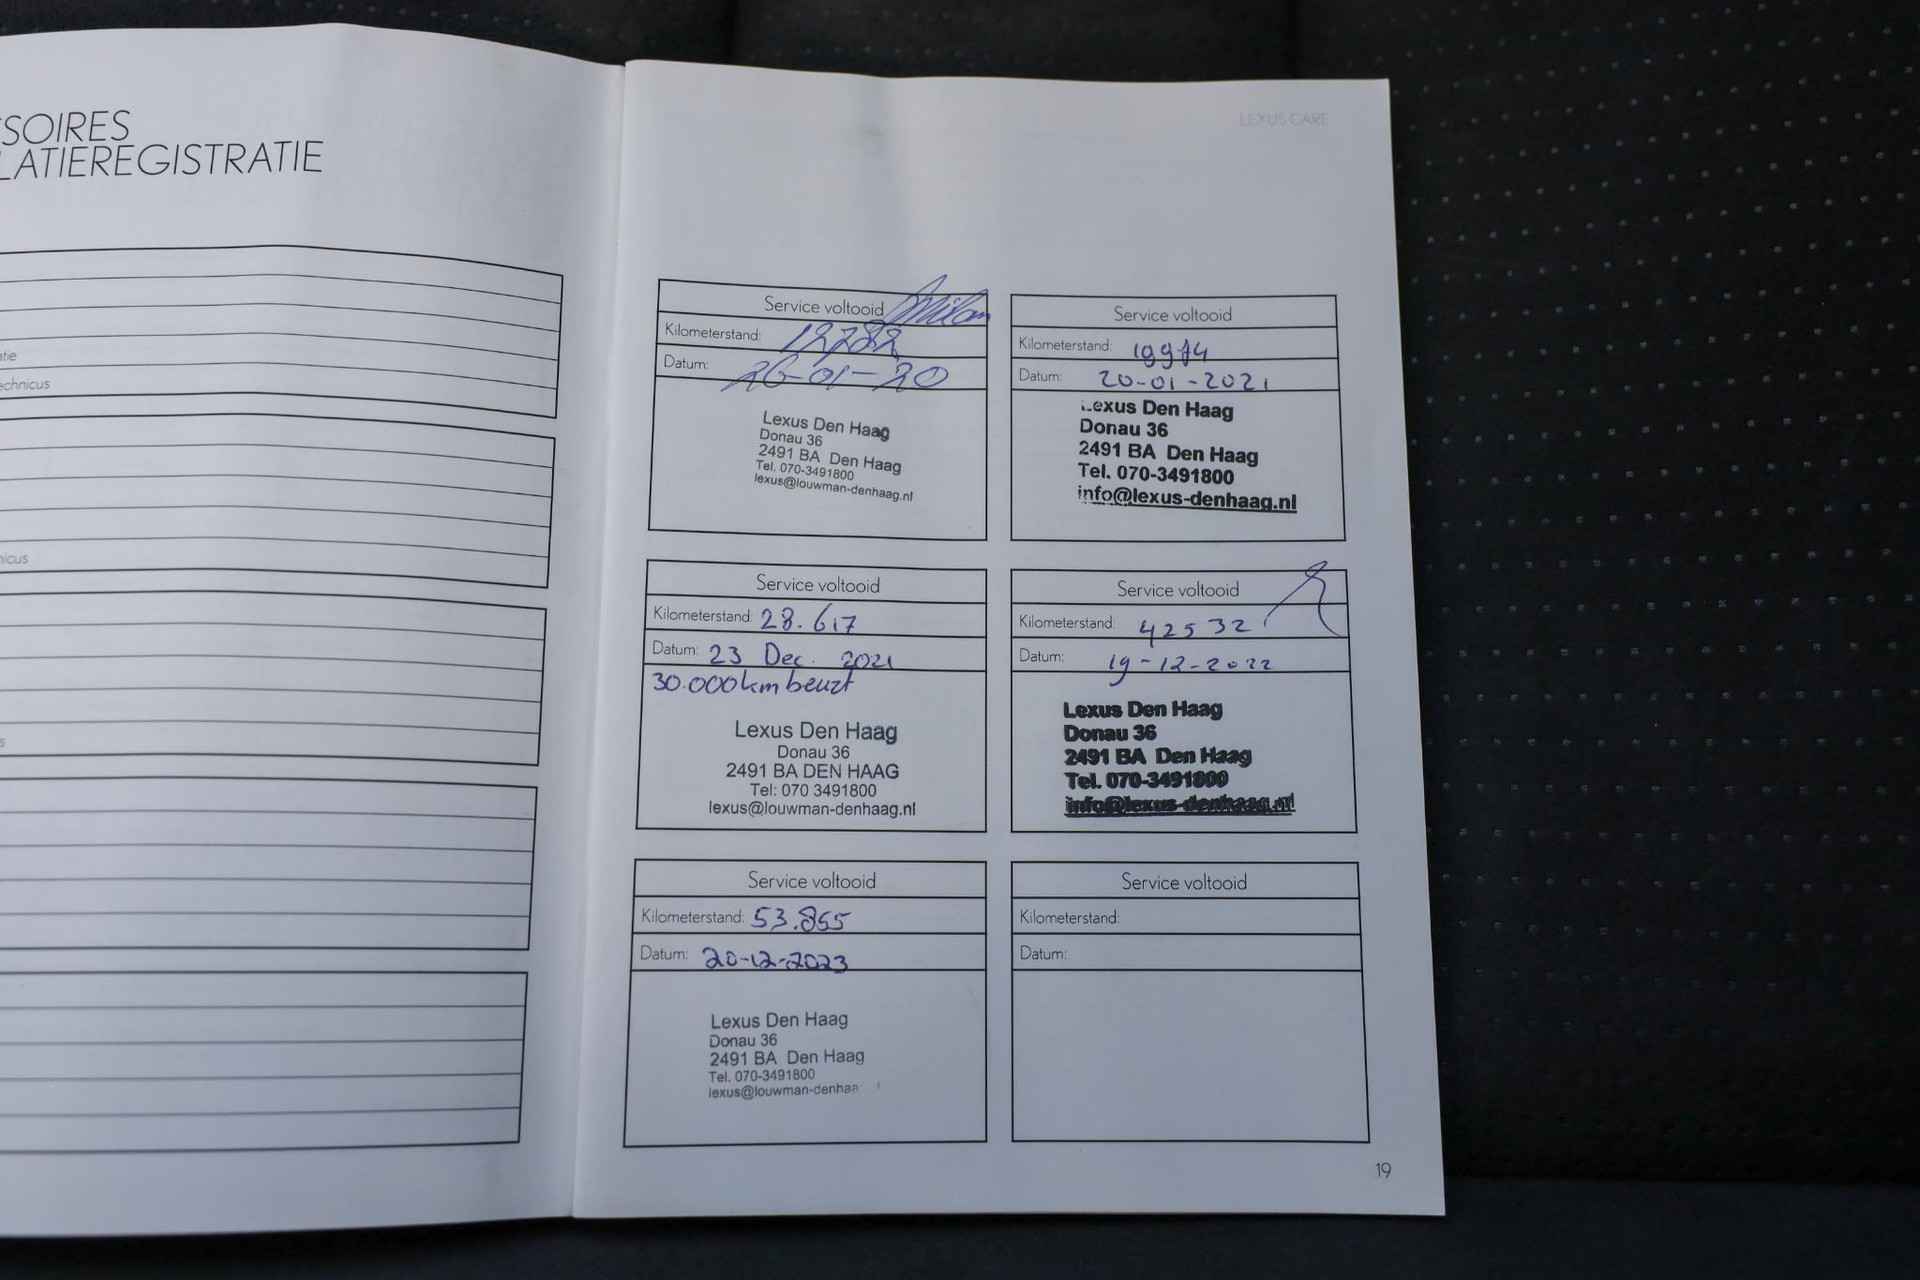 SSOIRES
LATIEREGISTRATIE
tie
echnicus
nicus
s
LEXUS CARE
Service voltooid
Kilometerstand:
Datum: 26-01-20
Lexus Den Haag
Donau 36
2491 BA Den Haag
Tel. 070-3491800
lexus@louwman-denhaag.nl
Service voltooid
Kilometerstand: 19974
Datum: 20-01-2021
Lexus Den Haag
Donau 36
2491 BA Den Haag
Tel. 070-3491800
info@lexus-denhaag.nl
Service voltooid
Kilometerstand: 28.617
Datum: 23 Dec. 2021
30.000km beurt
Lexus Den Haag
Donau 36
2491 BA DEN HAAG
Tel: 070 3491800
lexus@louwman-denhaag.nl
Service voltooid
Kilometerstand: 42532
Datum: 19-12-2022
Lexus Den Haag
Donau 36
2491 BA Den Haag
Tel. 070-3491800
info@lexus-denhaag.nl
Service voltooid
Kilometerstand: 53.865
Datum: 20-12-2023
Lexus Den Haag
Donau 36
2491 BA Den Haag
Tel. 070-3491800
lexus@louwman-denhaa
Service voltooid
Kilometerstand:
Datum:
19